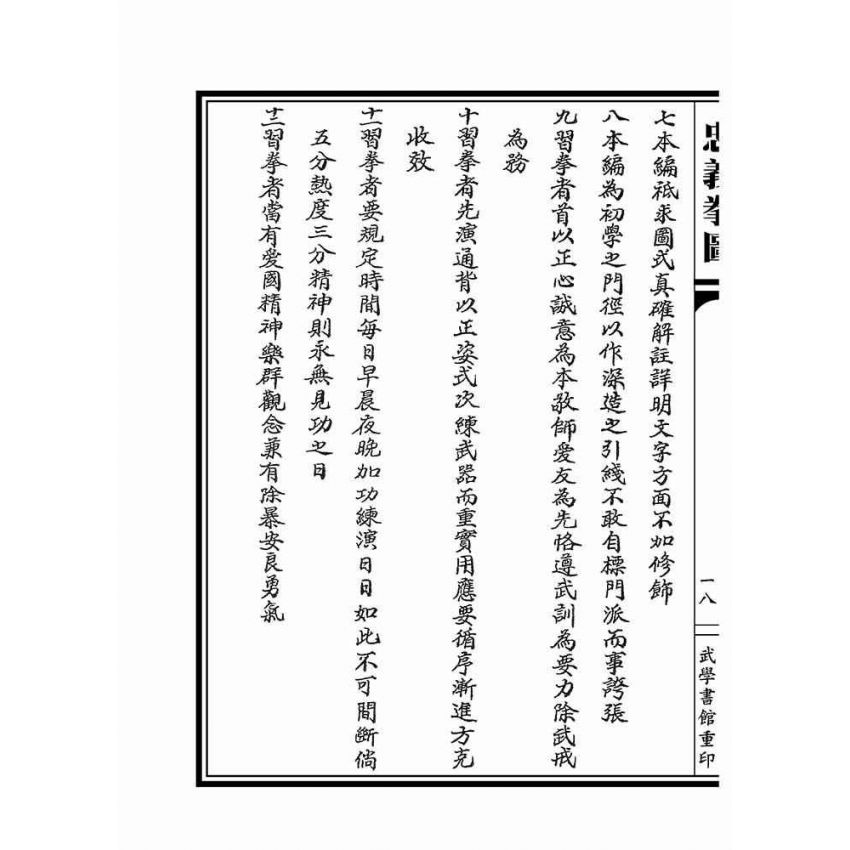 忠義拳圖
一八
武學書館重印
七本編祗求圖式真確解註詳明文字方面不加修飾
八本編為初學之門徑以作深造之引綫不敢自標門派而事誇張
九習拳者首以正心誠意為本敬師愛友為先恪遵武訓為要力除武戒
為務
十習拳者先演通背以正姿式次練武器而重實用應要循序漸進方克
收效
十一習拳者要規定時間每日早晨夜晚加功練演日日如此不可間斷倘
五分熱度三分精神則永無見功之日
十二習拳者當有愛國精神樂群觀念兼有除暴安良勇氣